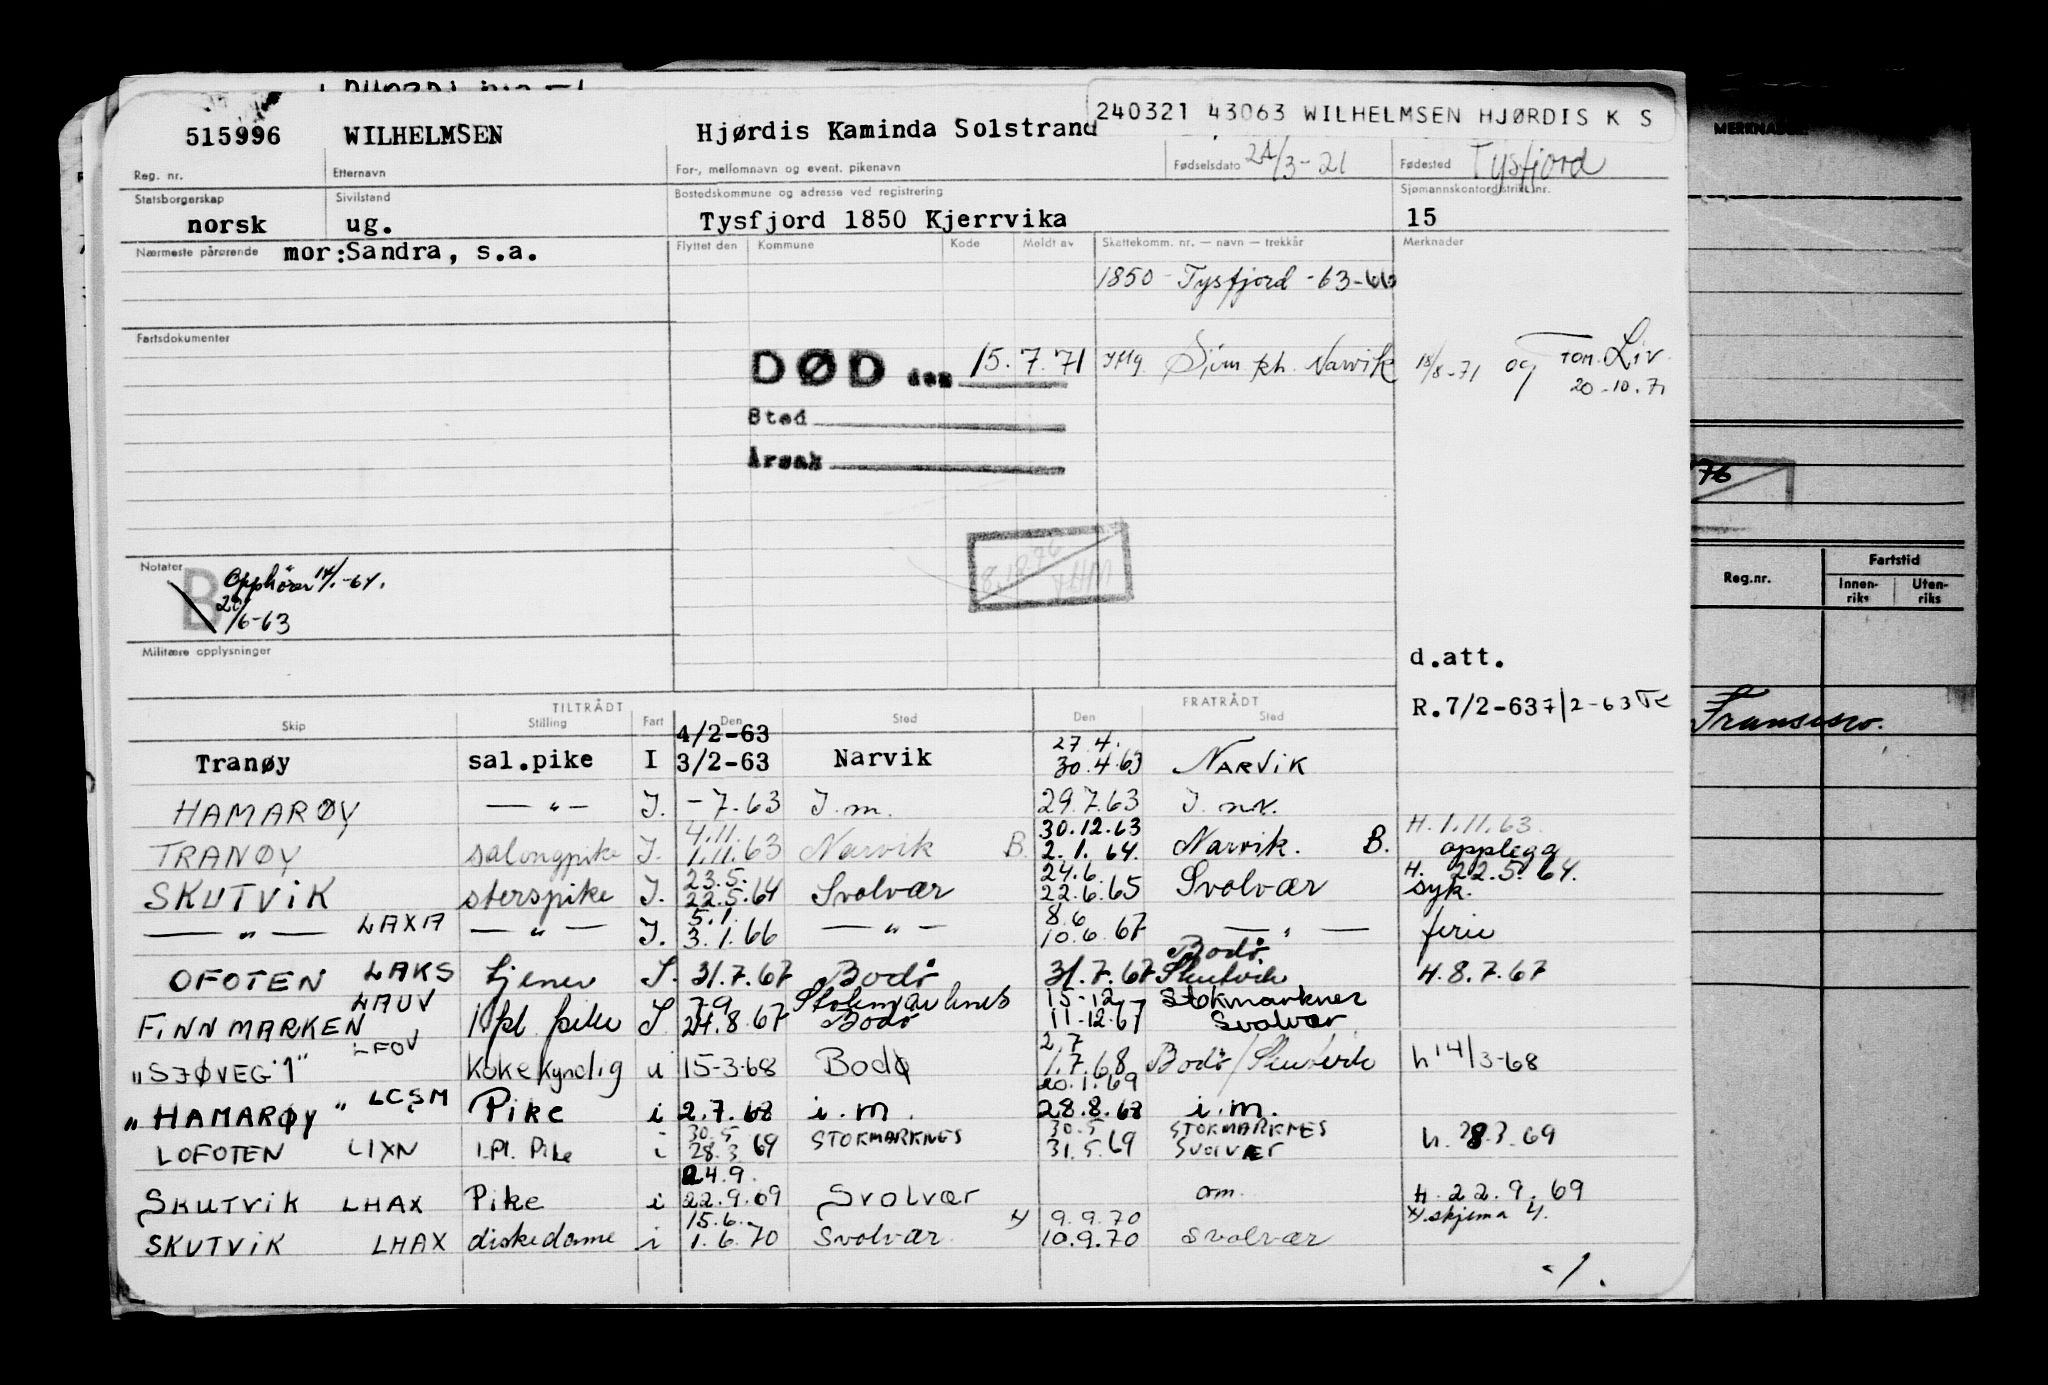 240321 43063 WILHELMSEN HJØRDIS K S
515996 WILHELMSEN Hjørdis Kaminda Solstrand 24/3-21 Tysfjord
Reg. nr. Etternavn For-, mellomnavn og event. pikenavn Fødselsdato Fødested
Statsborgerskap Sivilstand Bostedskommune og adresse ved registrering Sjømannskontordistrikt nr.
norsk ug. Tysfjord 1850 Kjerrvika 15
Nærmeste pårørende mor:Sandra, s.a. Flyttet den Kommune Kode Meldt av Skattekomm. nr. — navn — trekkår Merknader
1850 - Tysfjord - 63-
Fartsdokumenter
DØD den 15.7.71 Sjøm. kh. Narvik 18/8-71 og TOM. Liv. 20-10.71
Sted
Årsak
Notater
B Opphører 14/1.-64.
20/6-63
Militære opplysninger
d.att.
R.7/2-63 7/2-63
TILTRÅDT FRATRÅDT
Skip Stilling Fart Den Sted Den Sted
4/2-63 27.4.
Tranøy sal.pike I 3/2-63 Narvik 30.4.63 NARVIK
HAMARØY — " — I. -7.63 I.m. 29.7.63 I. nv.
4.11. 30.12.63 H. 1.11.63.
TRANØY salongpike I. 1.11.63 Narvik B. 2.1.64. Narvik. B. opplegg
23.5. 24.6. H. 22.5.64.
SKUTVIK sterspike I. 22.5.64 Svolvær 22.6.65 Svolvær syk.
5.1. 8.6
— " — LAXA — " — I. 3.1.66 — " — 10.6.67 — " — ferie
Bodø
OFOTEN LAKS tjener I. 31.7.67 Bodø 31.7.67 Skutvik H.8.7.67
LAUV 7.9 15-12 Stokmarknes
FINNMARKEN 1.pl. pike I 24.8.67 Bodø 11-12.67 Svolvær
LFOV 2.7
"SJØVEG 1" Kokekyndig i 15-3-68 Bodø 1.7.68 Bodø/Skutvik h 14/3-68
20.1.69
"HAMARØY" LCSM Pike i 2.7.68 i.m. 28.8.68 i.m.
30.5 STOKMARKNES 30.5 STOKMARKNES
LOFOTEN LIXN 1.Pl. Pike i 28.3.69 31.5.69 SVOLVÆR h. 28.3.69
24.9.
SKUTVIK LHAX Pike i 22.9.69 Svolvær om. H. 22.9.69
15.6. 9.9.70 skjema 4.
SKUTVIK LHAX diskedame i 1.6.70 Svolvær 10.9.70 Svolvær
./.
MERKNADER
76
Reg.nr. Fartstid
Innenriks Utenriks
Fransisco.